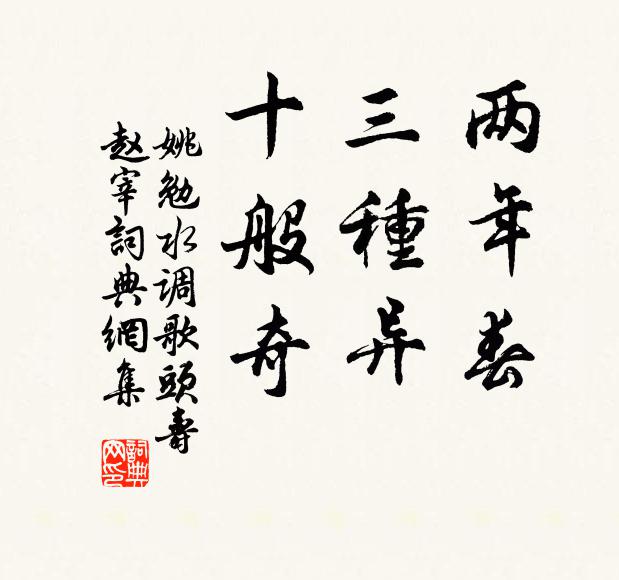 两年春
三種异
十般奇
姚勉水调歌頭壽
赵宰詞典網集
詞典网印